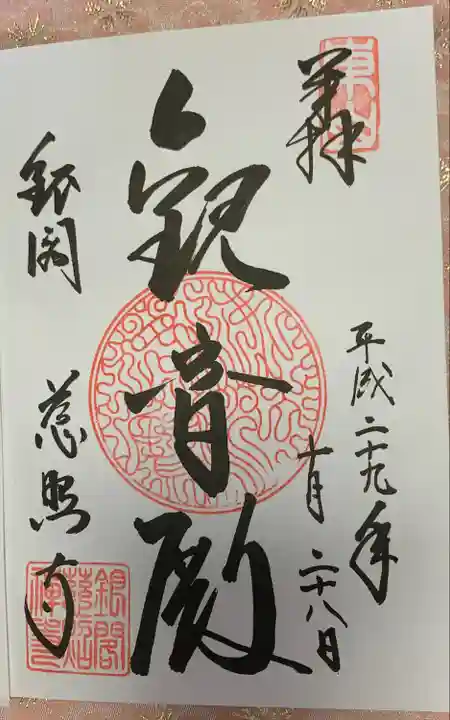 奉拝
平成二十九年
十月二十八日
観音殿
銀閣
慈照寺